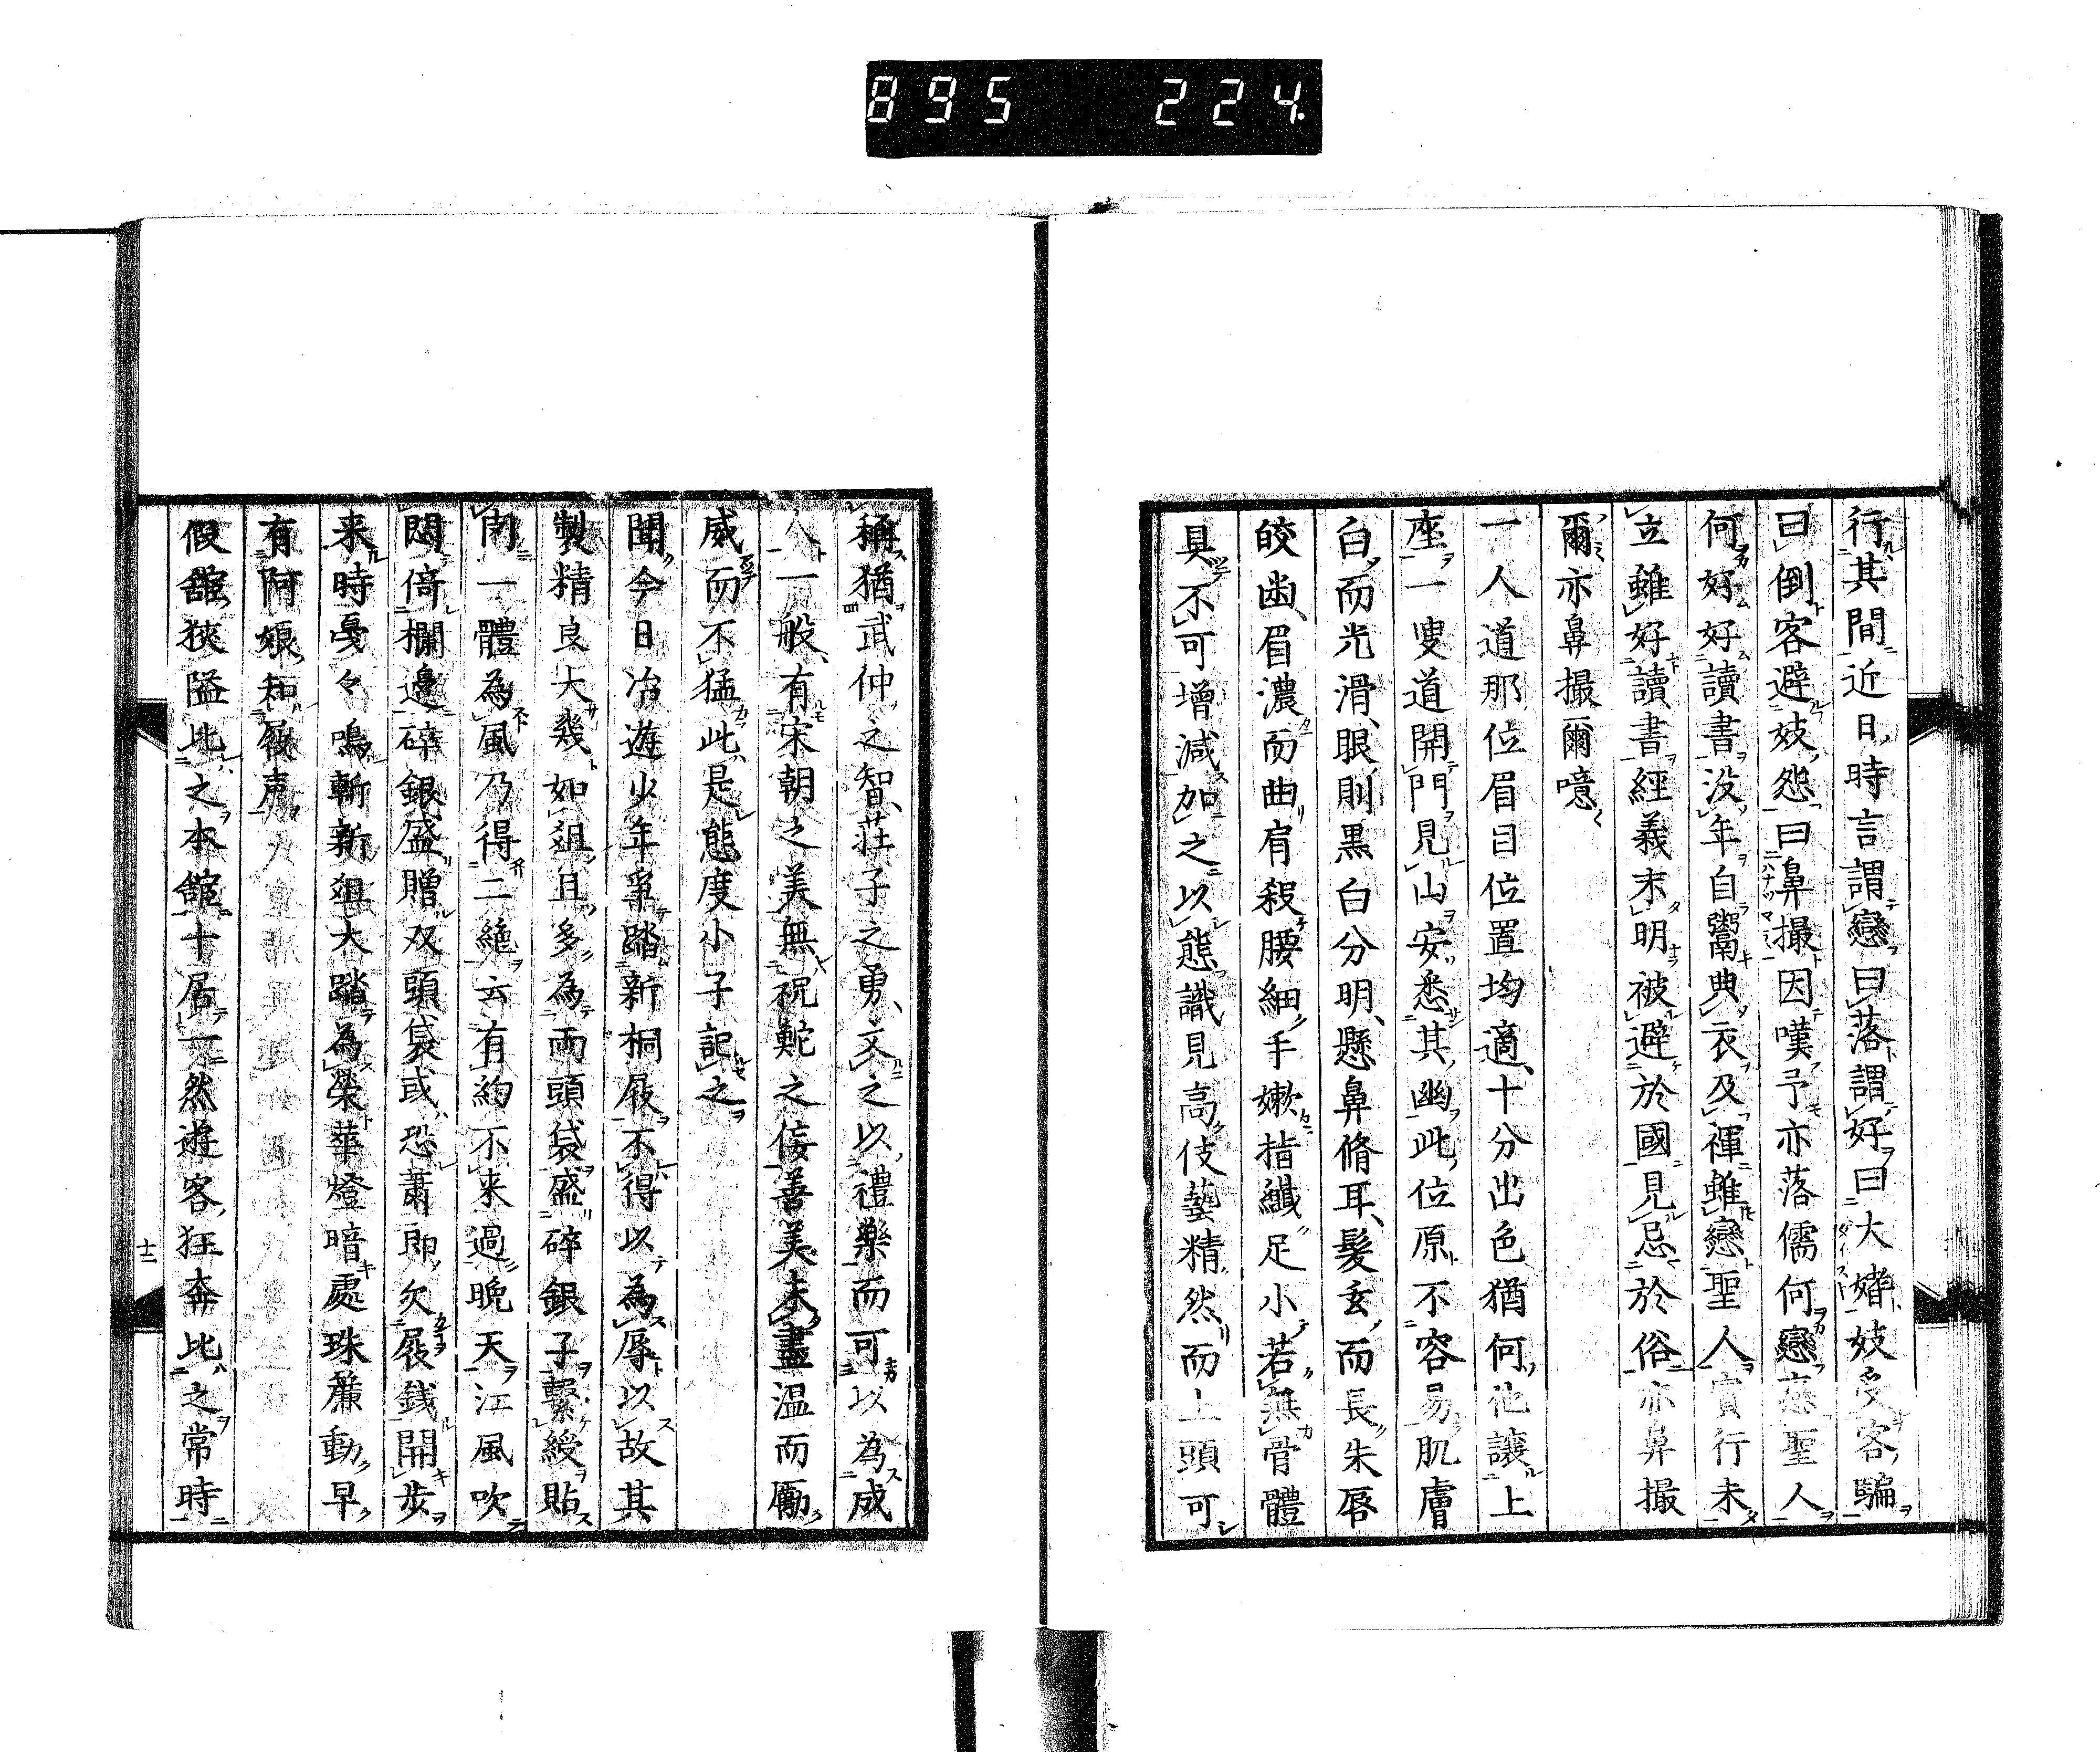 895 224
行其間近日時言謂戀曰落謂好曰大婼妓受客騙
曰倒客避妓怨曰鼻撮因嘆予亦落儒何戀聖人
何好好讀書没年自鬻典衣及褌雖戀聖人實行未
立雖好讀書經義未明被避於國見忌於俗亦鼻撮
爾亦鼻撮爾噫
一人道那位眉目位置均適十分出色猶何他讓上
座一叟道開門見山安悉其幽此位原不容易肌膚
白而光滑眼則黑白分明懸鼻脩耳髮玄而長朱唇
皎齒眉濃而曲肩殺腰細手嫰指纎足小若無骨體
具不可增減加之以態識見高伎藝精然而上頭可
稱猶武仲之智莊子之勇文之以禮樂而可以為成
人一般有宋朝之美無祝鮀之佞善美未盡温而厲
威而不猛此是態度小子記之
聞今日冶遊少年爭踏新桐屐不得以為辱以故其
製精良大幾如俎且多為両頭袋盛碎銀子繫綬貼
肉一體為風乃得二絶云有約不来過晩天江風吹
悶倚欄邉碎銀盛贈双頭袋或恐蕭郎欠屐銭開歩
来時戞々鳴斬新俎大踏為榮華燈暗處珠簾動早
有阿娘知屐声
假舘狹隘比之本舘十居一然遊客狂奔比之常時
十二